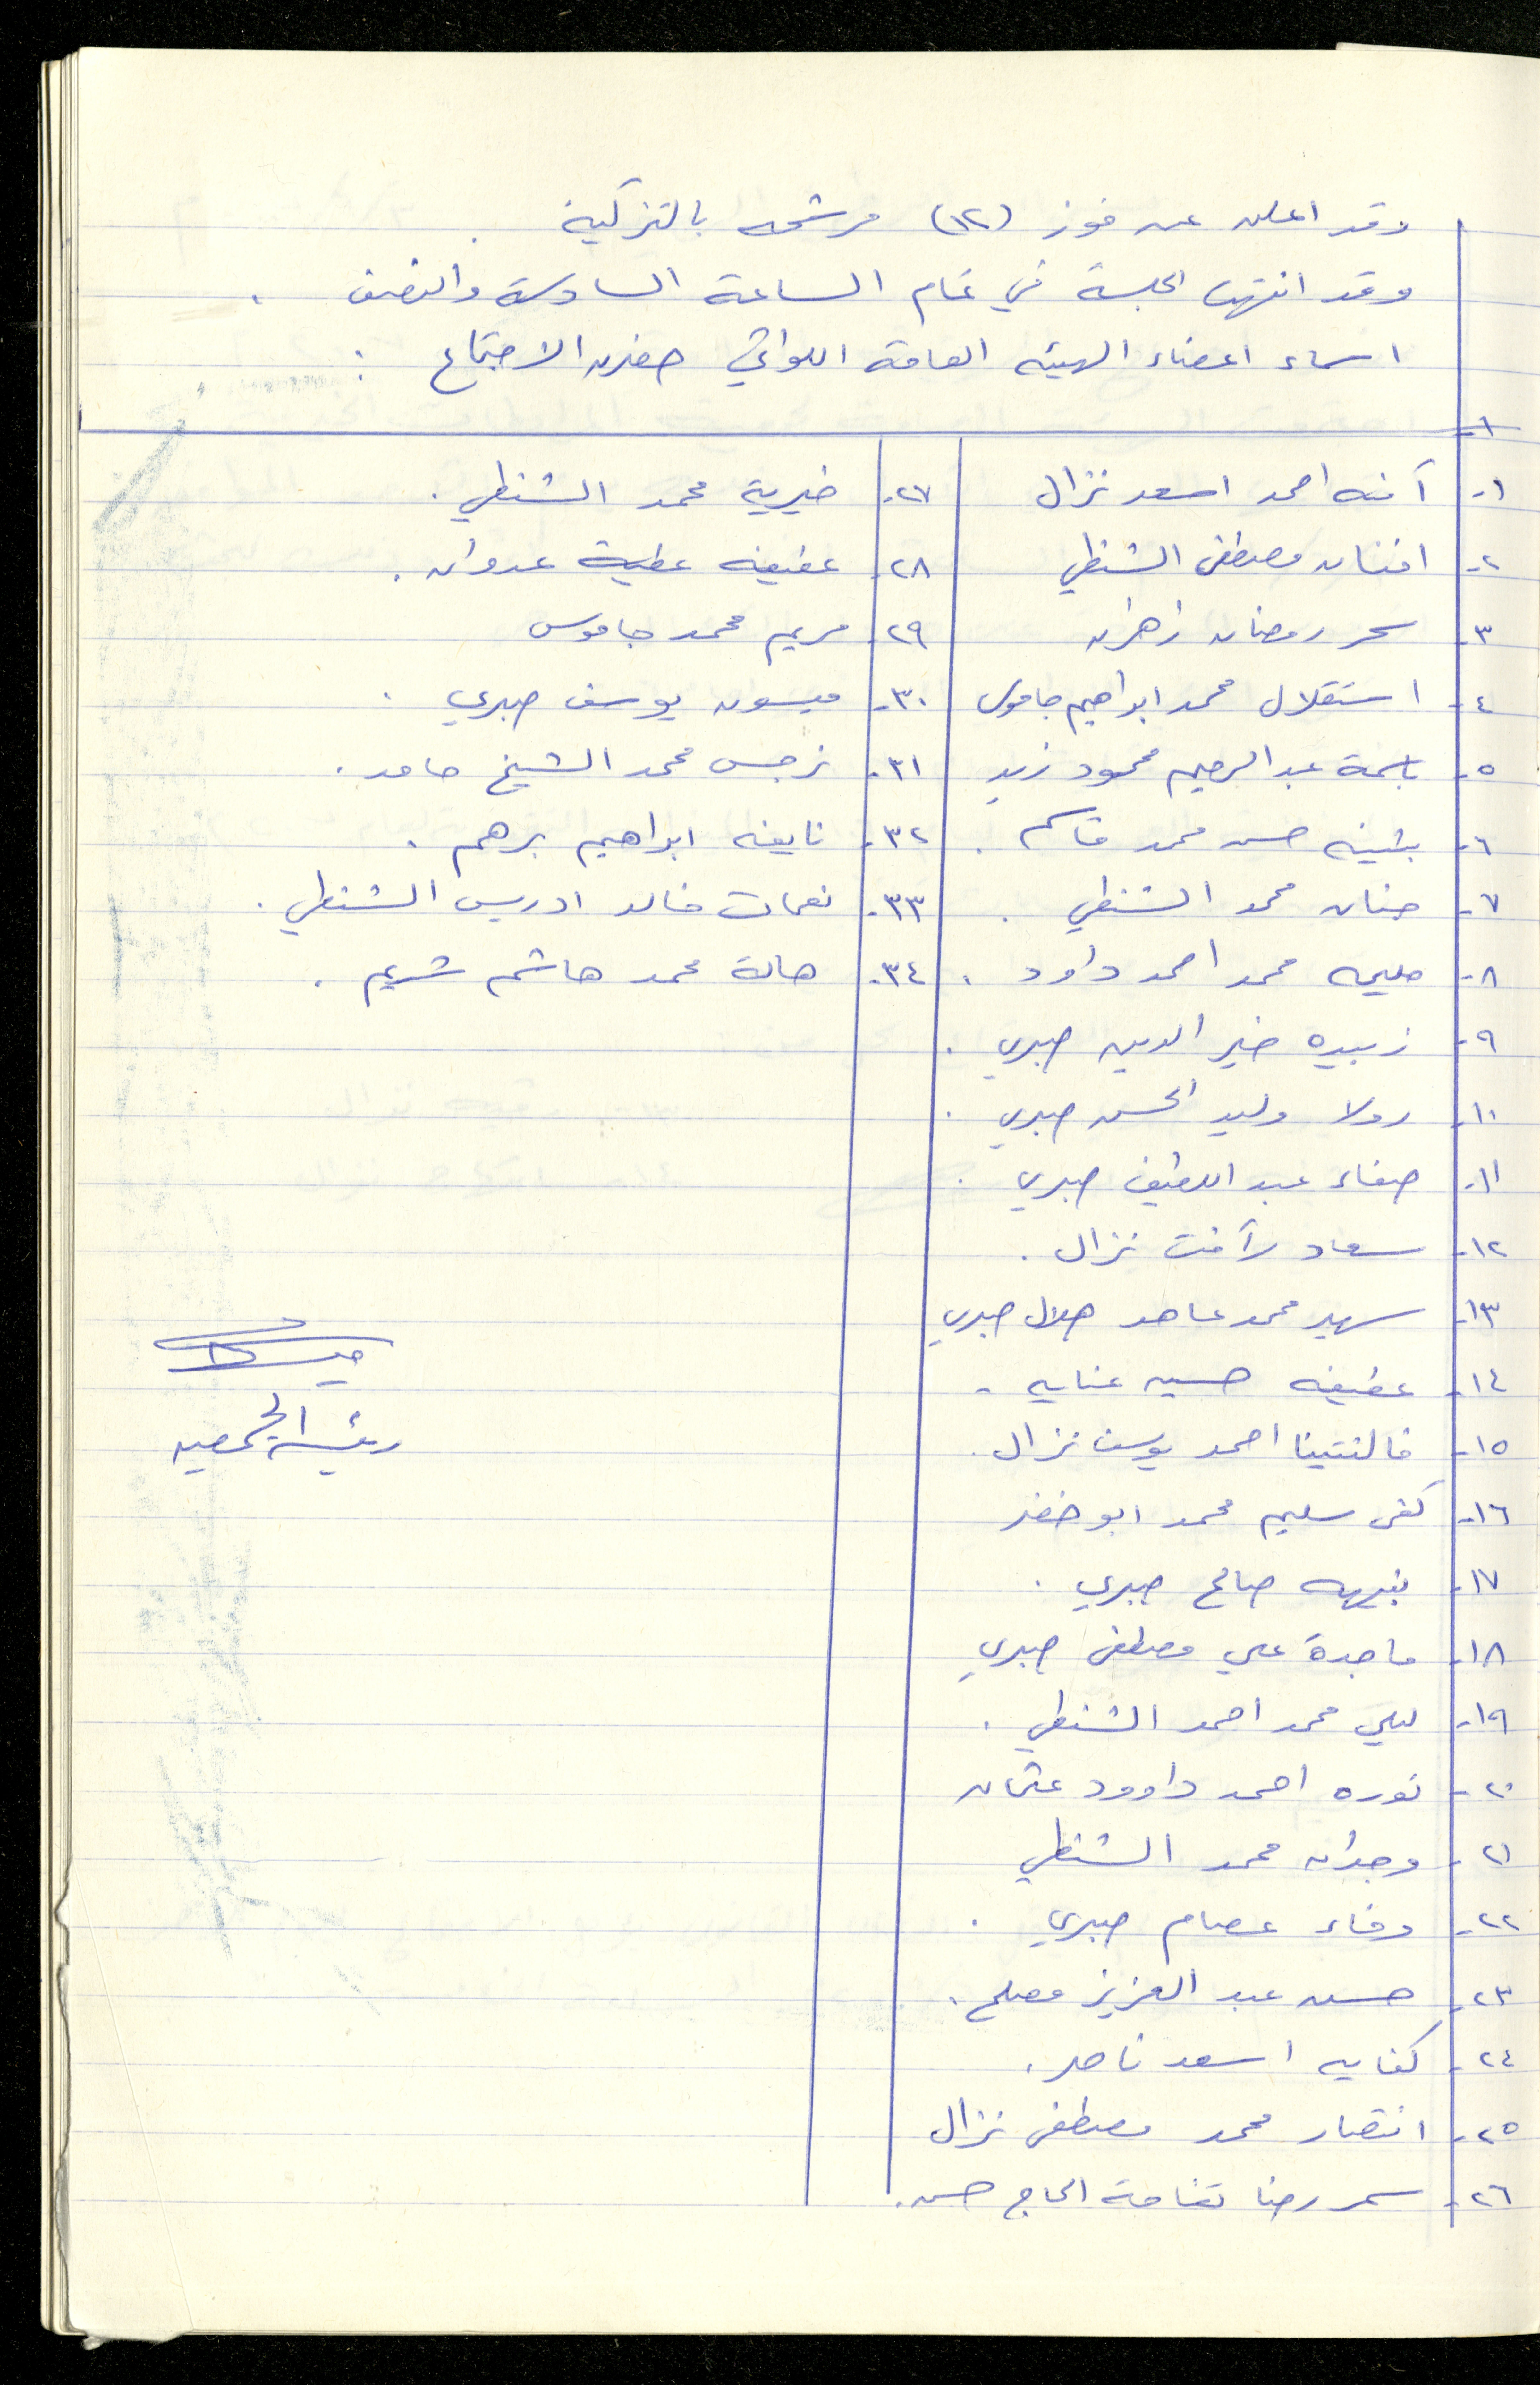 وقد اعلن عن فوز (١٢) مرشحه بالتزكية .
وقد انتهت الجلسة في تمام الساعة السادسة والنصف .
اسماء اعضاء الهيئه العامة اللواتي حضرن الاجتماع :
١-
١- آمنه احمد اسعد نزال
٢- افنان مصطفى الشنطي
٣- سحر رمضان زهران
٤- استقلال محمد ابراهيم جاموس
٥- باسمة عبد الرحيم محمود زيد
٦- بثينه حسن محمد قاسم .
٧- حنان محمد الشنطي .
٨- حليمه محمد احمد داود .
٩- زبيده خير الدين صبري .
١٠- رولا وليد الحسن صبري .
١١- صفاء عبد اللطيف صبري .
١٢- سعاد رآفت نزال .
١٣- سهير محمد عاهد هلال صبري
١٤- عفيفه حسين عنايه .
١٥- فالنتينا احمد يوسف نزال .
١٦- كفى سليم محمد ابو خضر
١٧- نبيهه صالح صبري .
١٨- ماجدة علي مصطفى صبري
١٩- ليلى محمد احمد الشنطي .
٢٠- نوره احمد داوود عثمان
٢١- وجدان محمد الشنطي
٢٢- وفاء عصام صبري .
٢٣- حسن عبد العزيز مصلح .
٢٤- كفايه اسعد ناصر .
٢٥- انتصار محمد مصطفى نزال
٢٦- سمر رضا الحاج حسن .
٢٧- خيرية محمد الشنطي .
٢٨- عفيفه عطية عدوان .
٢٩- مريم محمد جاموس
٣٠- ميسون يوسف صبري .
٣١- نرجس محمد الشيخ حامد .
٣٢- نايفه ابراهيم برهم .
٣٣- نعمات خالد ادريس الشنطي .
٣٤- هالة محمد هاشم شريم .
رئيسة الجمعيه